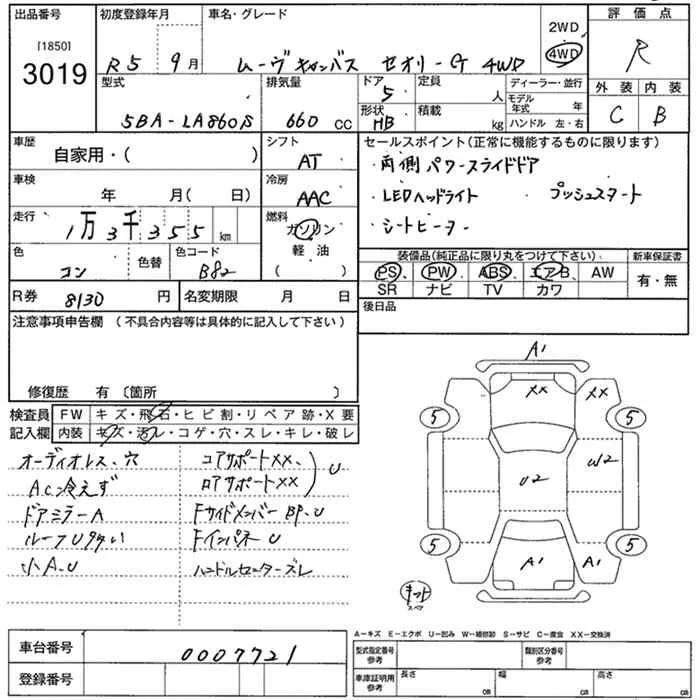 出品番号 初度登録年月 車名・グレード 2WD 評価点
[1850]
3019 R5 9月 ムーヴキャンバス セオリーG 4WD 4WD R
型式 排気量 ドア 定員 ディーラー・並行 外装 内装
5 人 モデル年式 年
5BA-LA860S 660 CC 形状 積載 C B
HB kg ハンドル 左・右
車歴 シフト セールスポイント(正常に機能するものに限ります)
自家用・( ) AT ・両側パワースライドドア
車検 冷房 ・LEDヘッドライト プッシュスタート
年 月( 日) AAC ・シートヒーター
走行 燃料
1万3千355 km ガソリン
色 色替 色コード 軽油 装備品(純正品に限り丸をつけて下さい) 新車保証書
コン B82 ( ) PS PW ABS エアB AW 有・無
R券 8130 円 名変期限 月 日 SR ナビ TV カワ
注意事項申告欄 (不具合内容等は具体的に記入して下さい) 後日品
修復歴 有 〔箇所 〕
検査員 FW キズ・飛石・ヒビ割・リペア跡・X要
記入欄 内装 キズ・汚レ・コゲ・穴・スレ・キレ・破レ
オーディオレス、穴 コアサポートXX、
AC冷えず ロアサポートXX U
ドアミラーA FサイドメンバーBP、U
ルーフU多い FインパネU
小A、U ハンドルセンターズレ
A1
XX XX
5 5
U2 W2
5 5
A1 A1
キット
スペア
A－キズ E－エクボ U－凹み W－補修跡 S－サビ C－腐食 XX－交換済
車台番号 0007721 型式指定番号 参考 類別区分番号 参考
登録番号 車庫証明用 参考 長さ cm 幅 cm 高さ cm